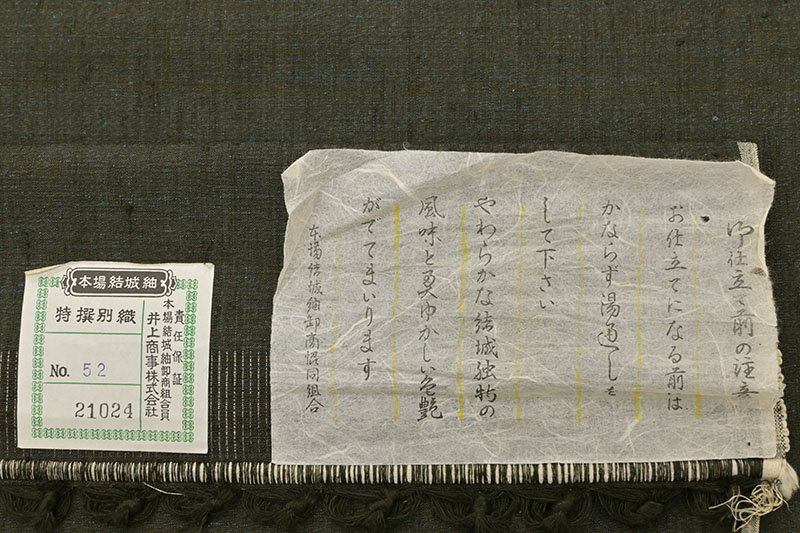 本場結城紬
特撰別織
No. 52
21024
責任保証
本場結城紬卸商組合員
井上商事株式会社
御仕立て前の注意
お仕立てになる前は
かならず湯通しを
して下さい
やわらかな結城独特の
風味と奥ゆかしい色艶
がでてまいります
本場結城紬卸商協同組合